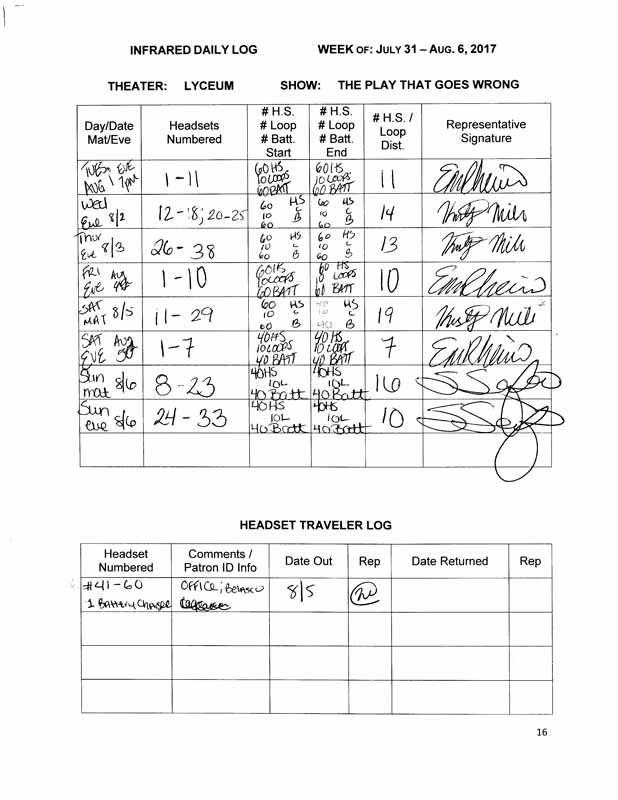 INFRARED DAILY LOG WEEK OF: JULY 31 – AUG. 6, 2017
THEATER: LYCEUM SHOW: THE PLAY THAT GOES WRONG
Day/Date Mat/Eve Headsets Numbered # H.S. # Loop # Batt. Start # H.S. # Loop # Batt. End # H.S. / Loop Dist. Representative Signature
TUES EVE AUG 1 7PM 1-11 60HS 10LOOPS 60BATT 60HS 10LOOPS 60 BATT 11
Wed Eve 8/2 12-18; 20-25 60 HS 10 L 60 B 60 HS 10 L 60 B 14
Thur Eve 8/3 26-38 60 HS 10 L 60 B 60 HS 10 L 60 B 13
FRI Aug Eve 1-10 60HS 10LOOPS 60BATT 60 HS 10 LOOPS 60 BATT 10
SAT MAT 8/5 11-29 60 HS 10 L 60 B 40 HS 10 L 40 B 19
SAT Aug EVE 1-7 40HS 10LOOPS 40 BATT 40HS 10LOOPS 40 BATT 7
Sun mat 8/6 8-23 40HS 10L 40 Batt 40HS 10L 40 Batt 16
Sun eve 8/6 24-33 40HS 10L 40 Batt 40HS 10L 40 Batt 10
HEADSET TRAVELER LOG
Headset Numbered Comments / Patron ID Info Date Out Rep Date Returned Rep
#41-60 OFFICE; BELASCO 8/5
1 Battery Charger
16